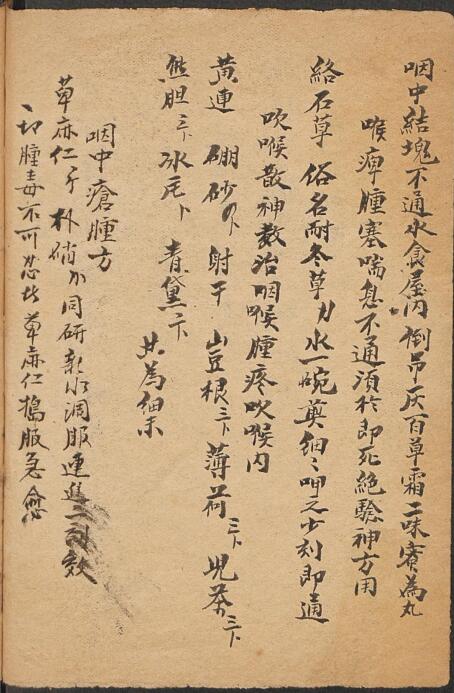 咽中結塊不通水食屋內倒吊灰百草霜二味蜜為丸
喉痺腫塞喘息不通須臾即死絕驗神方用
絡石草 俗名耐冬草 水一碗煎細細呷之少刻即通
吹喉散神教治咽喉腫疼吹喉內
黃連 硼砂 射干 山豆根 薄荷 兒茶
熊胆 冰片 青黛 共為細末
咽中瘡腫方
草麻仁 朴硝 同研新水調服連進二効
一切腫毒不可忍者草麻仁搗服急愈